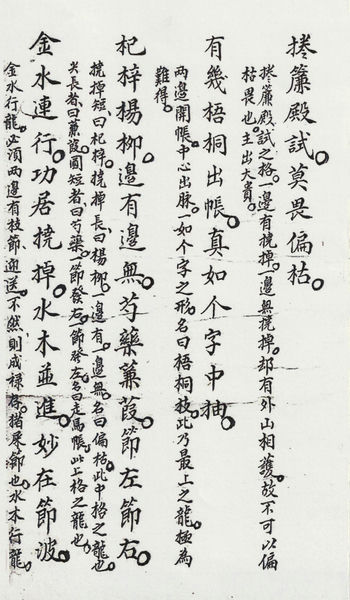 捲簾殿試莫畏偏枯
捲簾殿試之格一邊有撓掉一邊無撓掉却有外山相護故不可以偏
枯畏也主出大貴
有幾梧桐出帳真如个字中抽
兩邊開帳中心出脉一如个字之形名曰梧桐枝此乃最上之龍極為
難得
杞梓楊柳邊有邊無芍藥蒹葭節左節右
撓掉短曰杞梓撓掉長曰楊柳一邊有一邊無名曰偏枯此中格之龍也
尖長者曰蒹葭圓短者曰芍藥一節發右一節發左名曰走馬帳此上格之龍也
金水連行功居撓掉水木並進妙在節波
金水行龍必須兩邊有枝節迎送不然則成祿存猪屎節也水木行龍